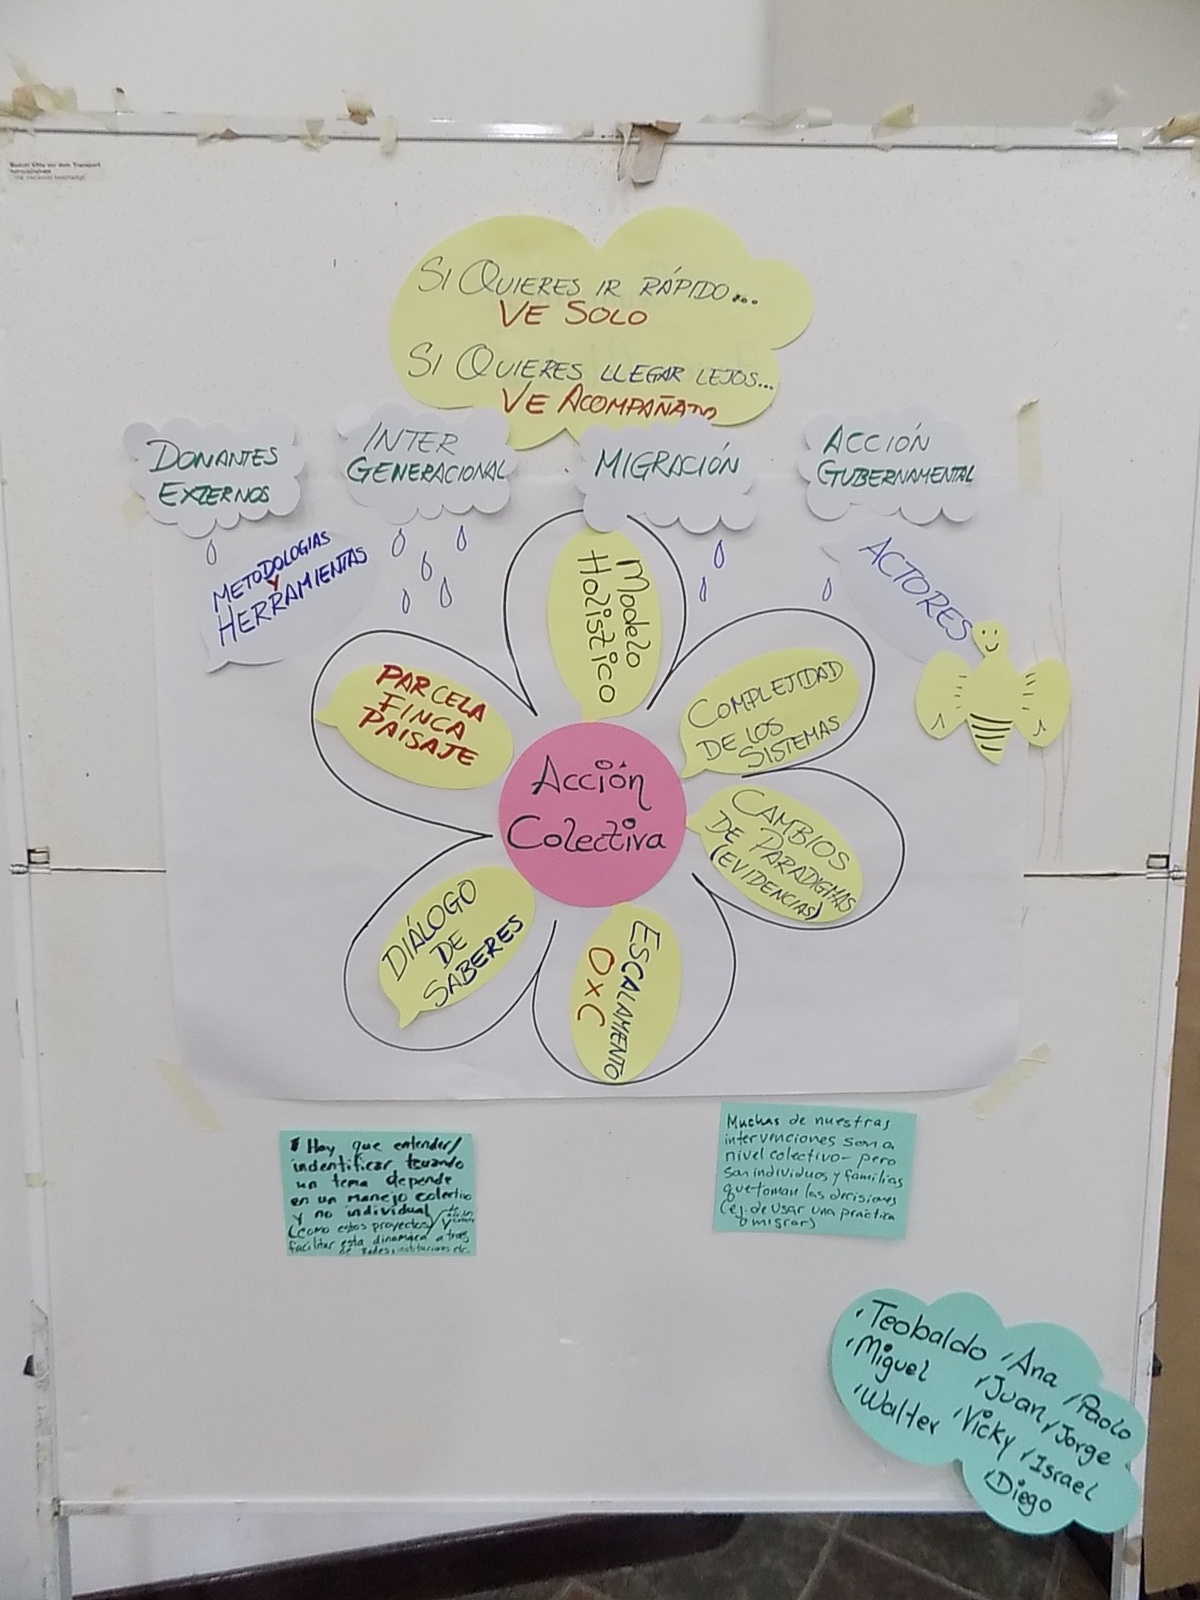 SI QUIERES IR RÁPIDO...
VE SOLO
SI QUIERES LLEGAR LEJOS...
VE ACOMPAÑADO
DONANTES
EXTERNOS
INTER
GENERACIONAL
MIGRACIÓN
ACCIÓN
GUBERNAMENTAL
METODOLOGIAS
Y
HERRAMIENTAS
ACTORES
Modelo
Holístico
PARCELA
FINCA
PAISAJE
COMPLEJIDAD
DE LOS
SISTEMAS
Acción
Colectiva
CAMBIOS
DE PARADIGMAS
(EVIDENCIAS)
DIÁLOGO
DE
SABERES
ESCALAMIENTO
OxC
Hay que entender/
indentificar cuando
un tema depende
en un manejo colectivo
y no individual
(como estos proyectos)
facilitar esta dinamica a tras
de redes, instituciones etc.
Muchas de nuestras
intervenciones son a
nivel colectivo - pero
son individuos y familias
que toman las decisiones
(ej. de usar una práctica
o migrar)
Teobaldo
Ana
Paolo
Miguel
Juan
Jorge
Walter
Vicky
Israel
Diego